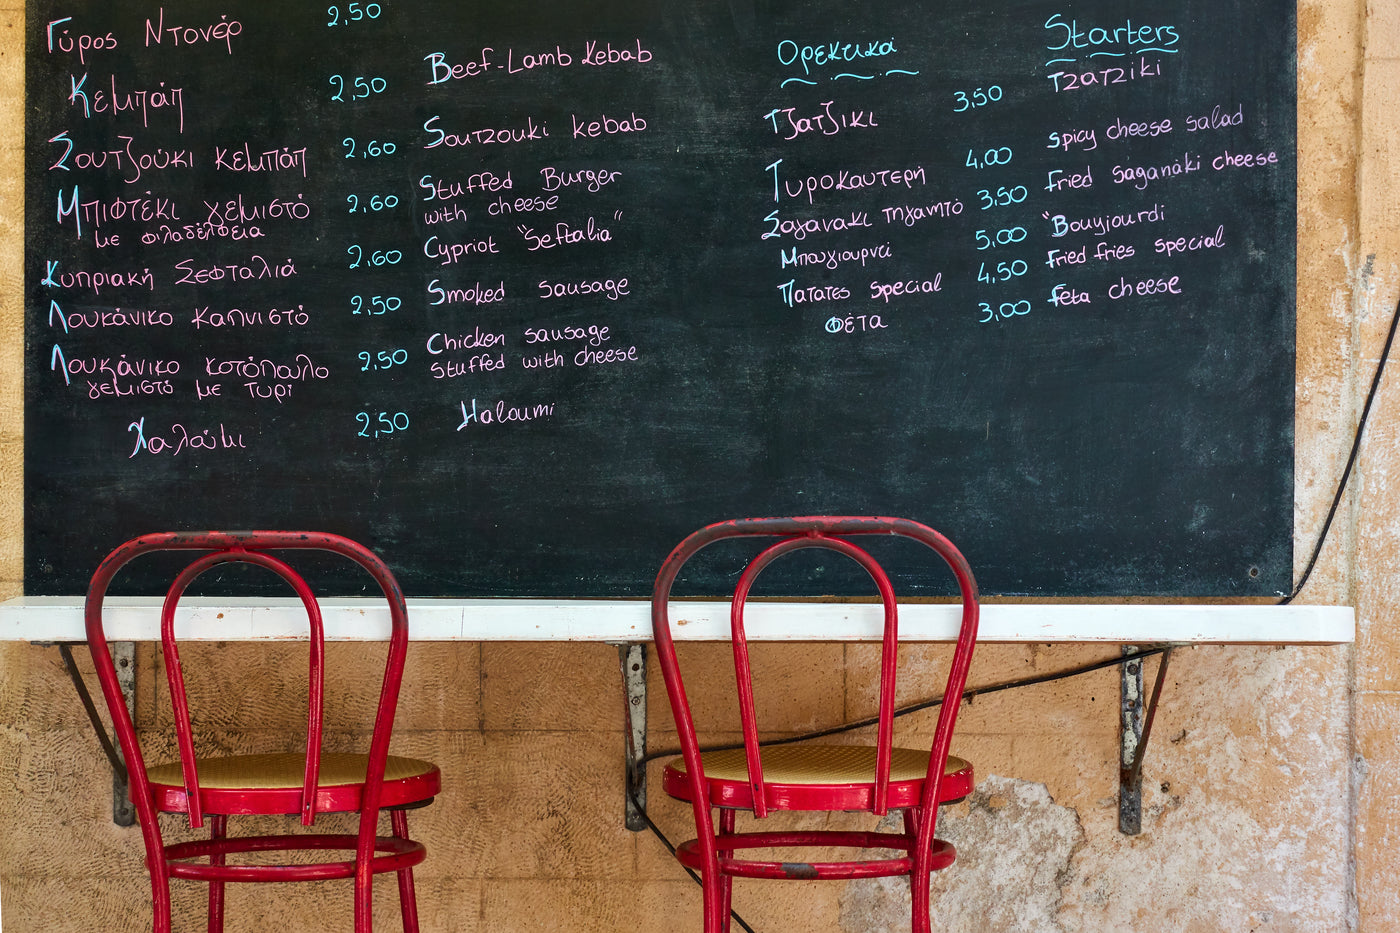 Γύρος Ντονέρ 2,50
Κεμπάπ 2,50 Beef-Lamb Kebab
Σουτζούκι κεμπάπ 2,60 Soutzouki kebab
Μπιφτέκι γεμιστό 2,60 Stuffed Burger
με φιλαδέλφεια with cheese
Κυπριακή Σεφταλιά 2,60 Cypriot "Seftalia"
Λουκάνικο καπνιστό 2,50 Smoked sausage
Λουκάνικο κοτόπουλο 2,50 Chicken sausage
γεμιστό με τυρί stuffed with cheese
Χαλούμι 2,50 Haloumi
Ορεκτικά Starters
Τζατζίκι 3,50 Tzatziki
Τυροκαυτερή 4,00 spicy cheese salad
Σαγανάκι τηγανητό 3,50 fried saganaki cheese
Μπουγιουρντί 5,00 "Bouyiourdi
Πατάτες special 4,50 fried fries special
Φέτα 3,00 feta cheese